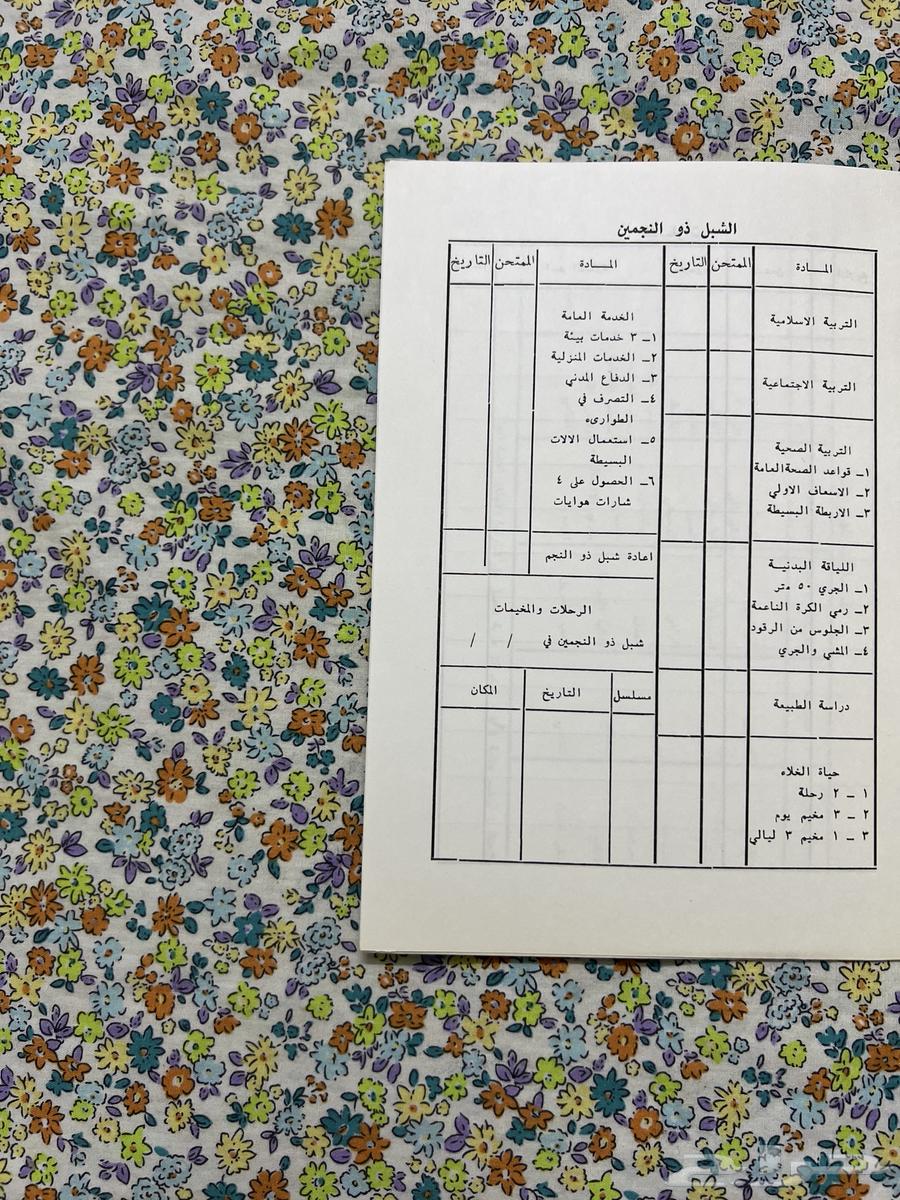 الشبل ذو النجمين
المـــادة الممتحن التاريخ
التربية الاسلامية
التربية الاجتماعية
التربية الصحية
١ــ قواعد الصحة العامة
٢ــ الاسعاف الاولي
٣ــ الاربطة البسيطة
اللياقة البدنيــة
١ــ الجري ٥٠ متر
٢ــ رمي الكرة الناعمة
٣ــ الجلوس من الرقود
٤ــ المشي والجري
دراسة الطبيعة
حياة الخلاء
١ ــ ٢ رحلة
٢ ــ ٣ مخيم يوم
٣ ــ ١ مخيم ٣ ليالي
المـــادة الممتحن التاريخ
الخدمة العامة
١ــ ٣ خدمات بيئة
٢ــ الخدمات المنزلية
٣ــ الدفاع المدني
٤ــ التصرف في
الطوارىء
٥ــ استعمال الالات
البسيطة
٦ــ الحصول على ٤
شارات هوايات
اعادة شبل ذو النجم
الرحلات والمخيمات
شبل ذو النجمين في / /
مسلسل التاريخ المكان